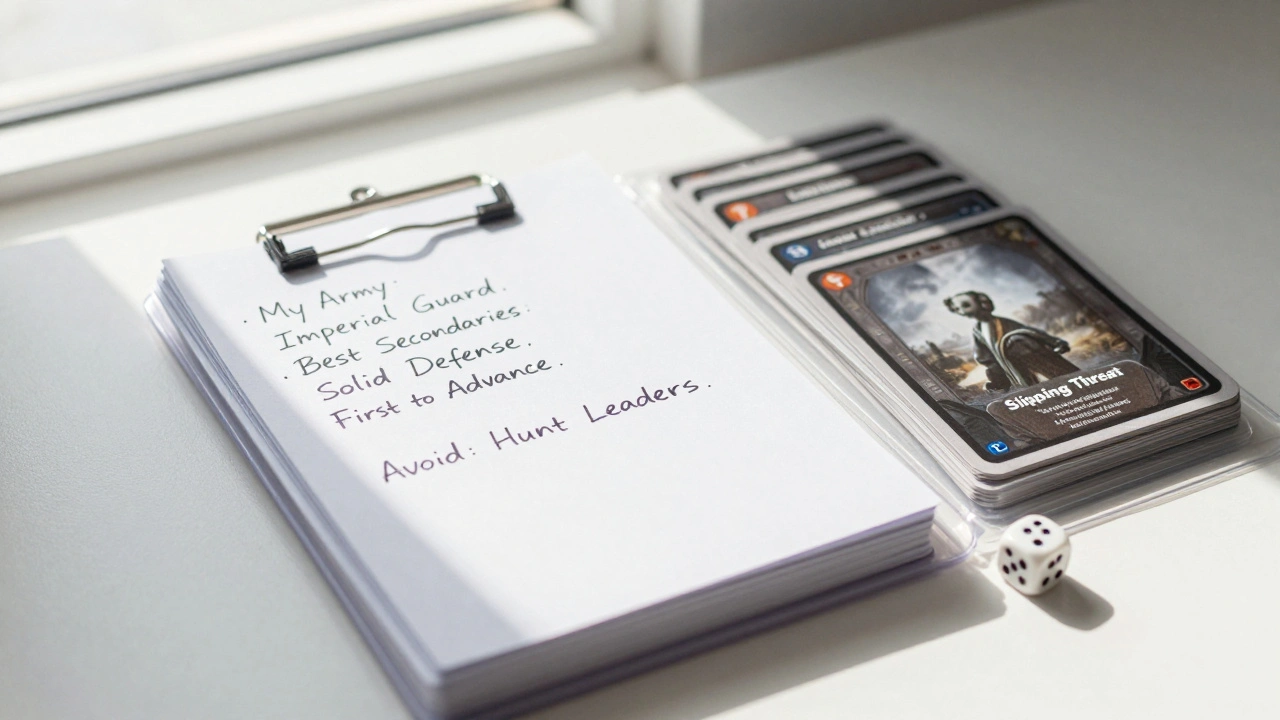 · My Army.
Imperial Guard.
· Best Secondaries:
Solid Defense.
First to Advance.
Avoid: Hunt Leaders.
Slipping Threat